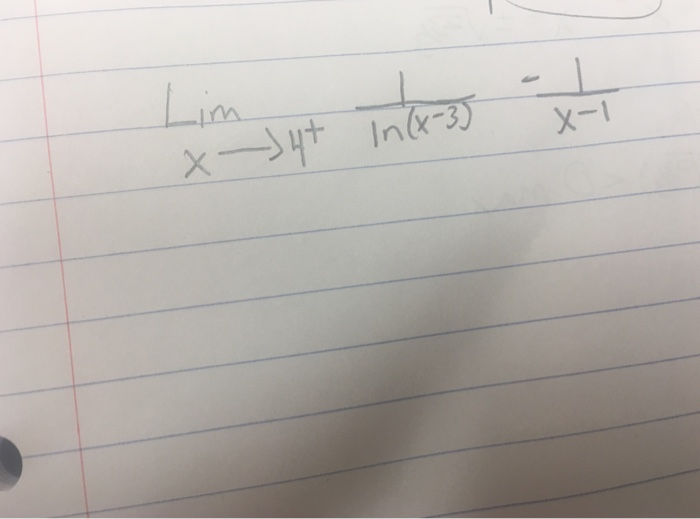 Lim x→4⁺ 1/ln(x-3) - 1/x-1